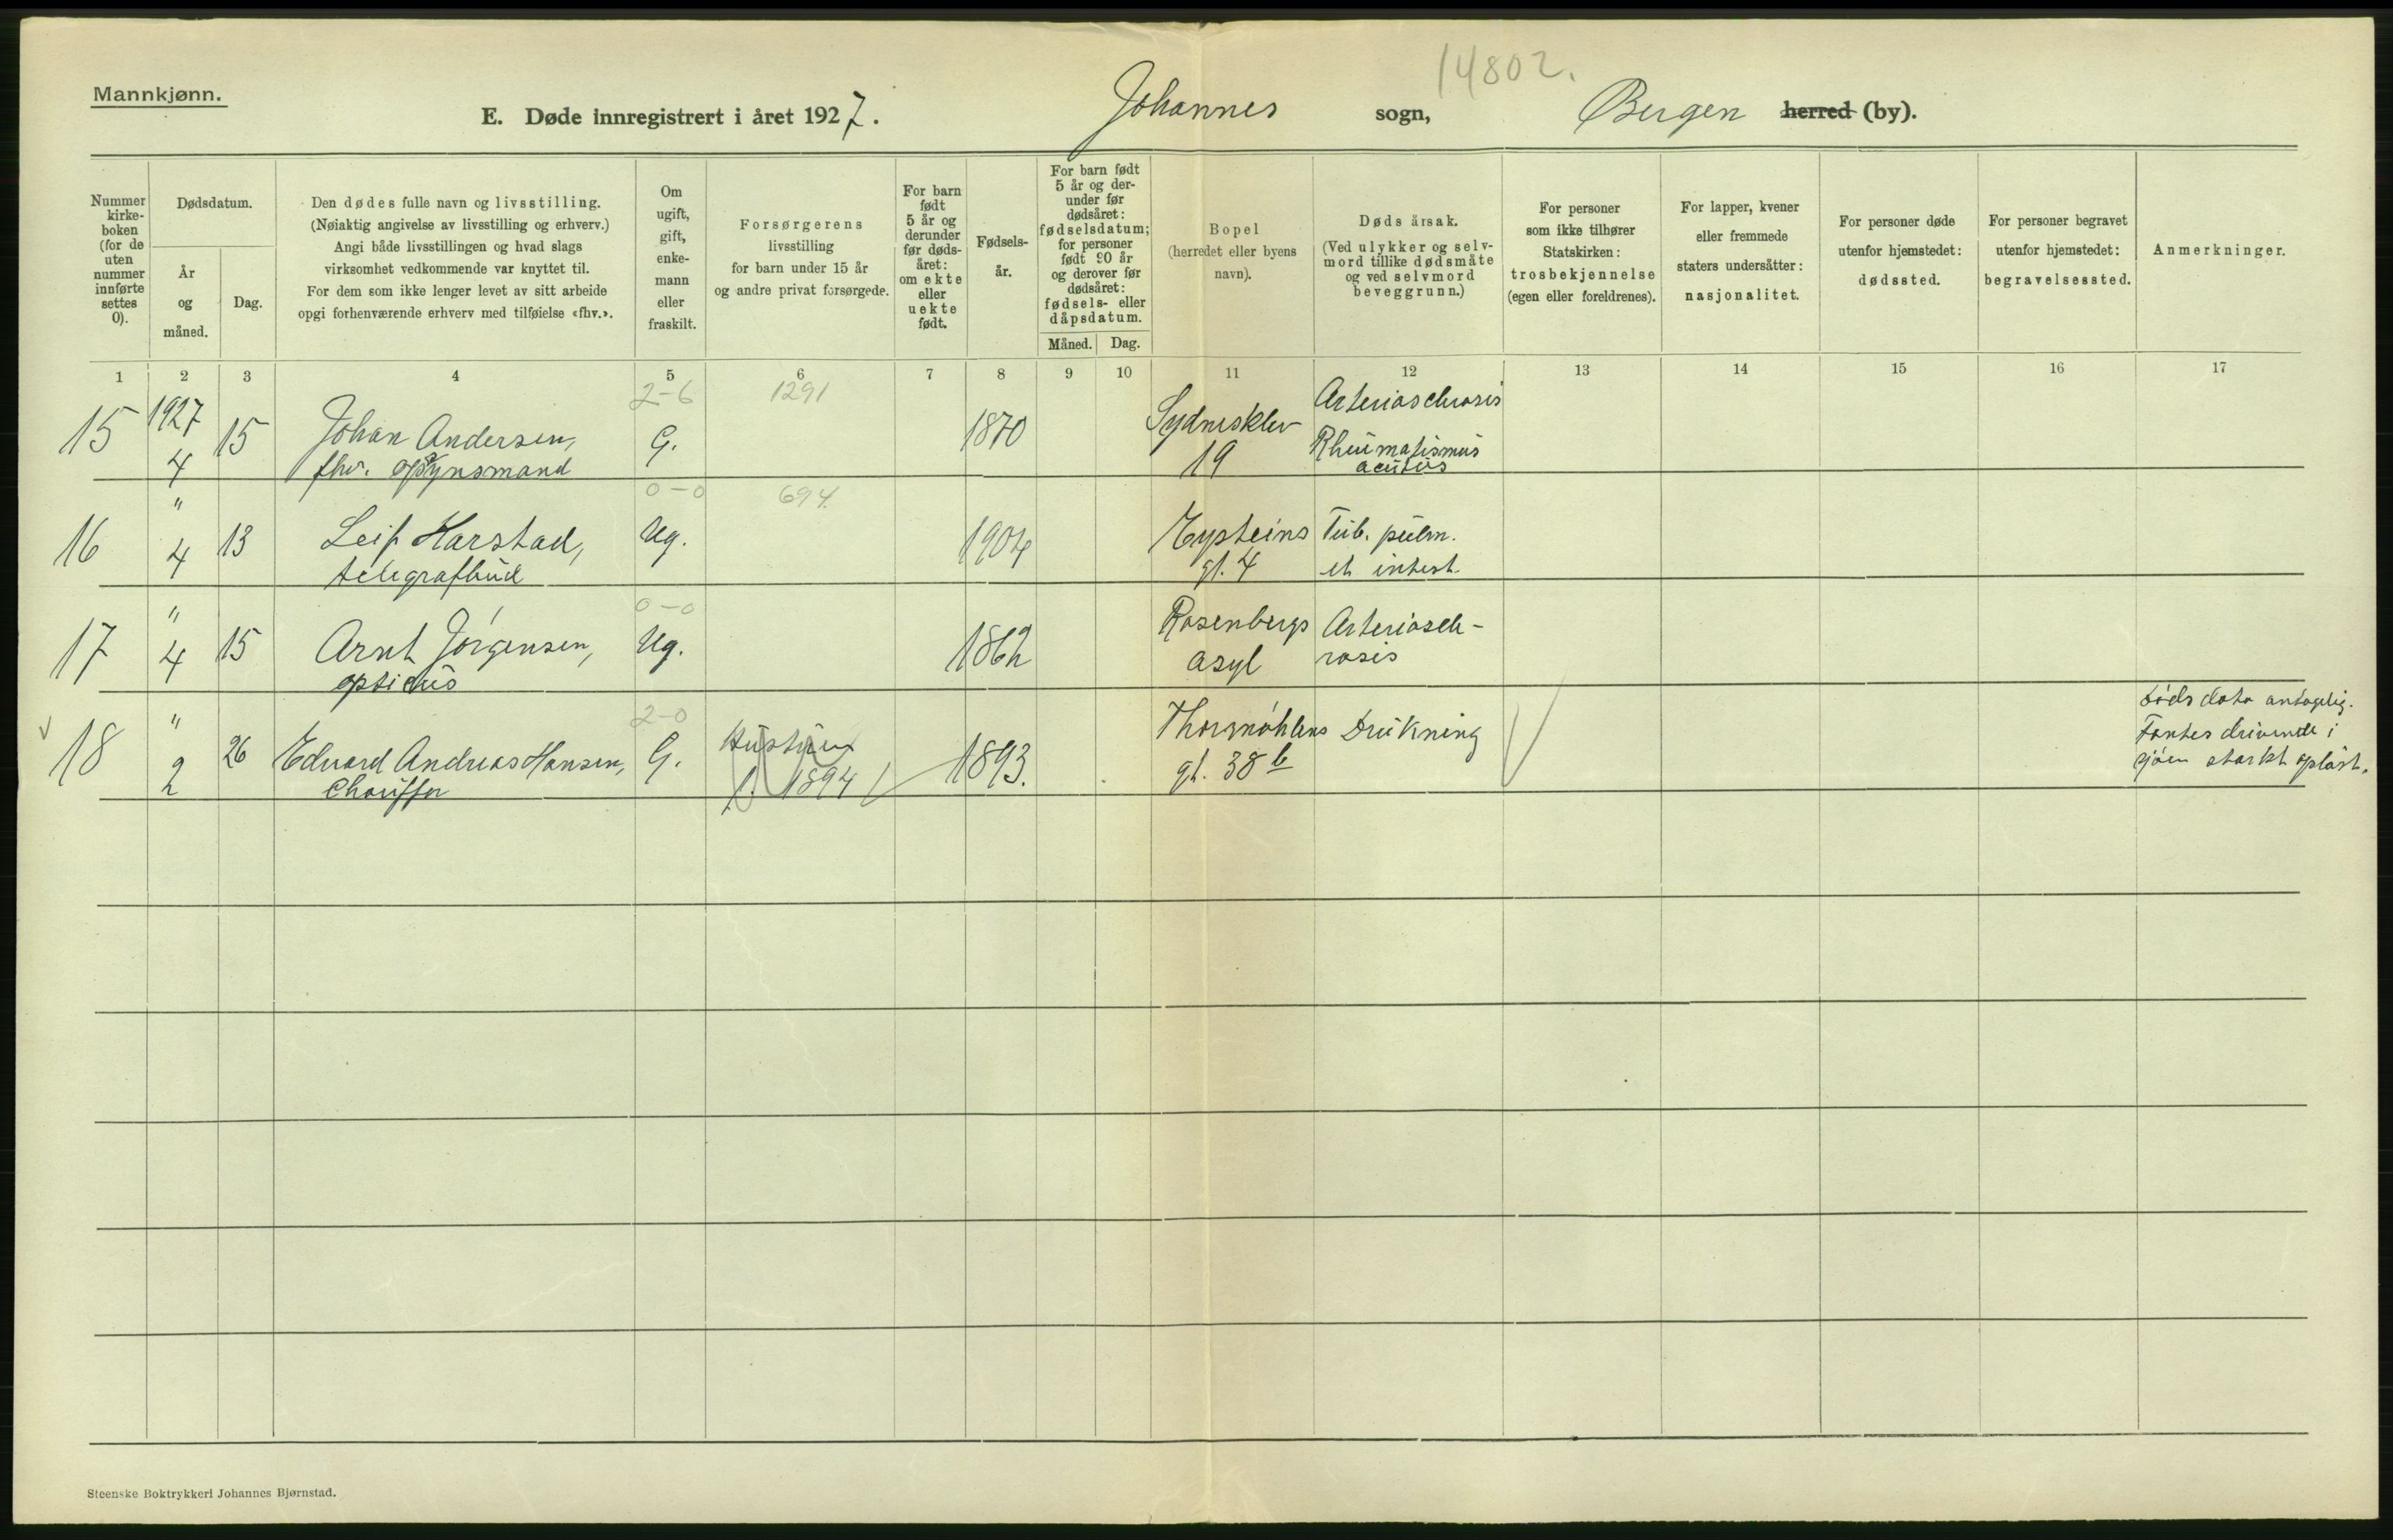 14802.
Mannkjønn.
E. Døde innregistrert i året 1927. Johannes sogn, Bergen herred (by).
Nummer
kirke-
boken
(for de
uten
nummer
innførte
settes
0).
Dødsdatum.
År
og
måned.
Dag.
Den dødes fulle navn og livsstilling.
(Nøiaktig angivelse av livsstilling og erhverv.)
Angi både livsstillingen og hvad slags
virksomhet vedkommende var knyttet til.
For dem som ikke lenger levet av sitt arbeide
opgi forhenværende erhverv med tilføielse «fhv.».
Om
ugift,
gift,
enke-
mann
eller
fraskilt.
Forsørgerens
livsstilling
for barn under 15 år
og andre privat forsørgede.
For barn
født
5 år og
derunder
før døds-
året:
om ekte
eller
uekte
født.
Fødsels-
år.
For barn født
5 år og der-
under før
dødsåret:
fødselsdatum;
for personer
født 90 år
og derover før
dødsåret:
fødsels- eller
dåpsdatum.
Måned.
Dag.
Bopel
(herredet eller byens
navn).
Døds årsak.
(Ved ulykker og selv-
mord tillike dødsmåte
og ved selvmord
beveggrunn.)
For personer
som ikke tilhører
Statskirken:
trosbekjennelse
(egen eller foreldrenes).
For lapper, kvener
eller fremmede
staters undersåtter:
nasjonalitet.
For personer døde
utenfor hjemstedet:
dødssted.
For personer begravet
utenfor hjemstedet:
begravelsessted.
Anmerkninger.
1 2 3 4 5 6 7 8 9 10 11 12 13 14 15 16 17
15
1927
4
15
Johan Andersen,
fhv. opsynsmand
2-6
G.
1291
1870
Sydnesklev
19
Arteriosclerosis
Rheumatismus
acutus
16
"
4
13
Leif Harstad,
telegrafbud
0-0
Ug.
694.
1904
Eysteins
gt. 4
Tub. pulm.
et intest.
17
"
4
15
Arnt Jørgensen,
opticus
0-0
Ug.
1862
Rosenbergs
asyl
Arterioscle-
rosis
18
"
2
26
Edvard Andreas Hansen,
Chauffør
2-0
G.
Hustru
f. 1894
1893.
Thormøhlens
gt. 38 b
Drukning
Døds dato antagelig.
Fantes drivende i
sjøen sterkt opløst.
Steenske Boktrykkeri Johannes Bjørnstad.